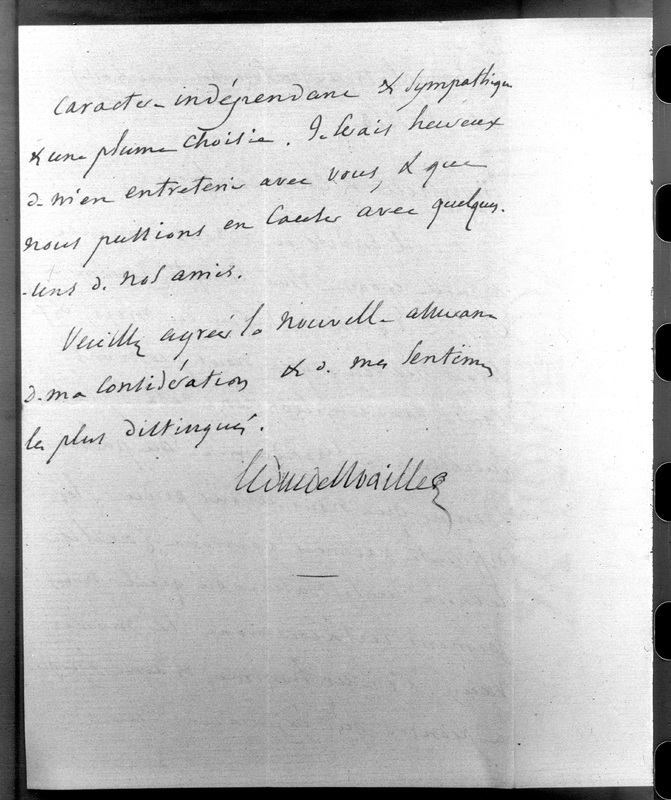 caractère indépendant & sympathique
& une plume choisie. Je serais heureux
de m'en entretenir avec vous, & que
nous pussions en causer avec quelques-
-uns de nos amis.
Veuillez agréer la nouvelle assurance
de ma considération & de mes sentimens
les plus distingués.
le duc de Maillé